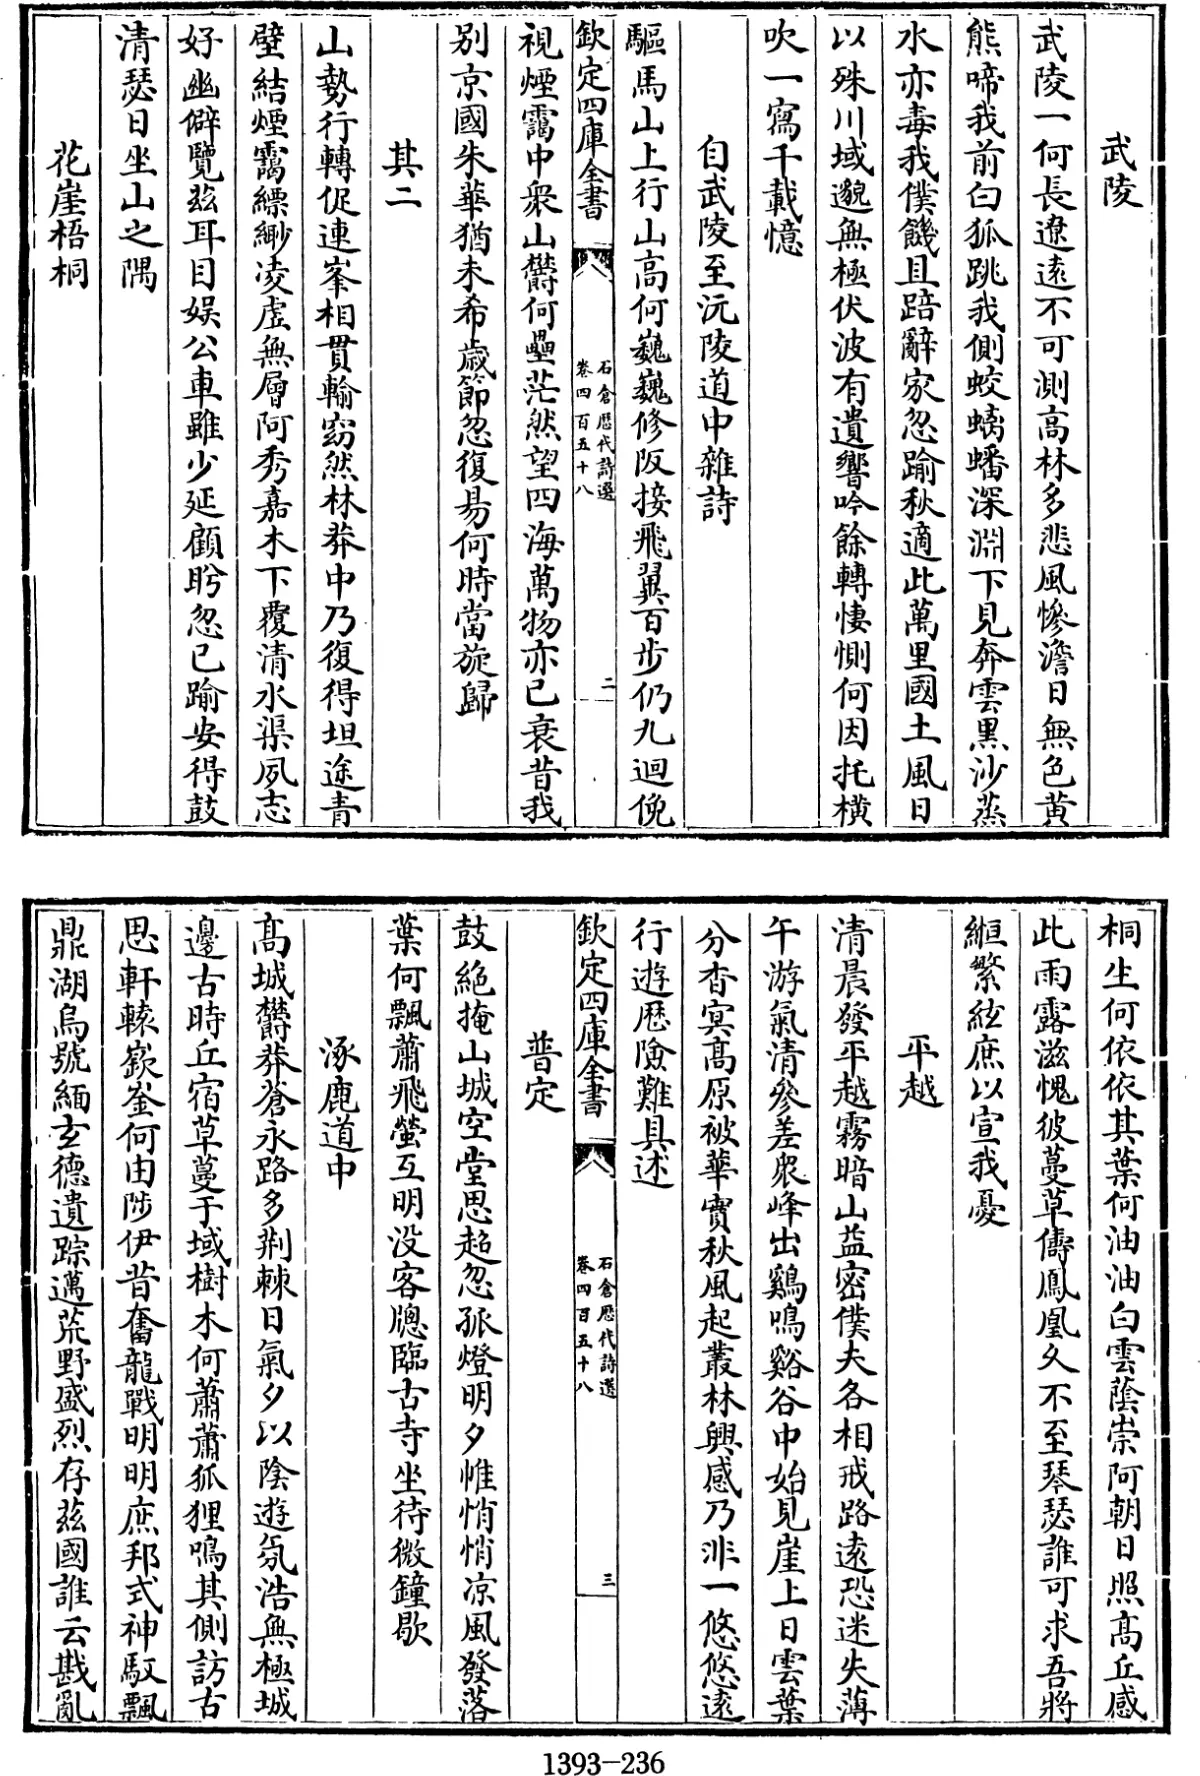 武陵
武陵一何長遼遠不可測高林多悲風慘澹日無色黃
熊啼我前白狐跳我側蛟螭蟠深淵下見奔雲黑沙蒸
水亦毒我僕饑且踣辭家忽踰秋適此萬里國土風日
以殊川域邈無極伏波有遺響吟餘轉悽惻何因托橫
吹一寫千載憶
自武陵至沅陵道中雜詩
驅馬山上行山高何巍巍修阪接飛翼百步仍九迴俛
欽定四庫全書
石倉歷代詩選
卷四百五十八
二
視煙靄中衆山欝何壘茫然望四海萬物亦已衰昔我
別京國朱華猶未希歲節忽復易何時當旋歸
其二
山勢行轉促連峯相貫輸窈然林莽中乃復得坦途青
壁結煙靄縹緲凌虛無層阿秀嘉木下覆清水渠夙志
好幽僻覽茲耳目娛公車雖少延顧盻忽已踰安得鼓
清瑟日坐山之隅
花崖梧桐
桐生何依依其葉何油油白雲蔭崇阿朝日照高丘感
此雨露滋愧彼蔓草儔鳳凰久不至琴瑟誰可求吾將
縆繁絃庶以宣我憂
平越
清晨發平越霧暗山益密僕夫各相戒路遠恐迷失薄
午游氣清參差衆峰出鷄鳴谿谷中始見崖上日雲葉
分杳冥高原被華實秋風起叢林興感乃非一悠悠遠
行遊歷險難具述
欽定四庫全書
石倉歷代詩選
卷四百五十八
三
普定
鼓絶掩山城空堂思超忽孤燈明夕帷悄悄凉風發落
葉何飄蕭飛螢互明没客牕臨古寺坐待微鐘歇
涿鹿道中
高城欝莽蒼永路多荆棘日氣夕以陰遊氛浩無極城
邊古時丘宿草蔓于域樹木何蕭蕭狐狸鳴其側訪古
思軒轅嶔崟何由陟伊昔奮龍戰明明庶邦式神馭飄
鼎湖烏號緬玄德遺踪邁荒野盛烈存茲國誰云戡亂
1393-236